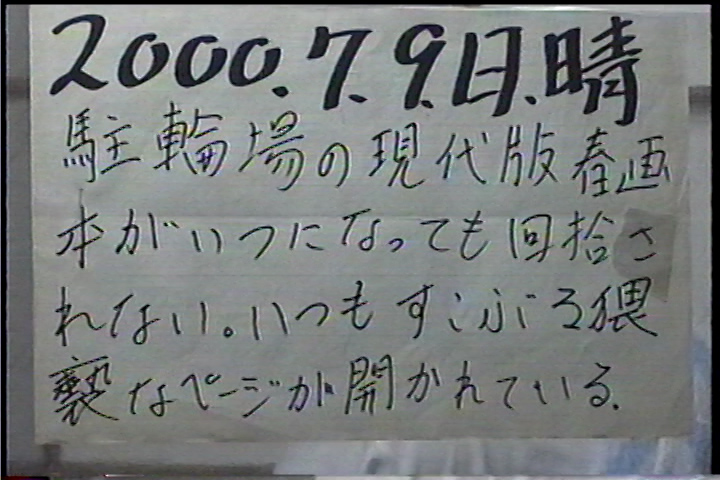 2000.7.9.日.晴
駐輪場の現代版春画
本がいつになっても回拾さ
れない。いつもすこぶる猥
褻なページが開かれている.